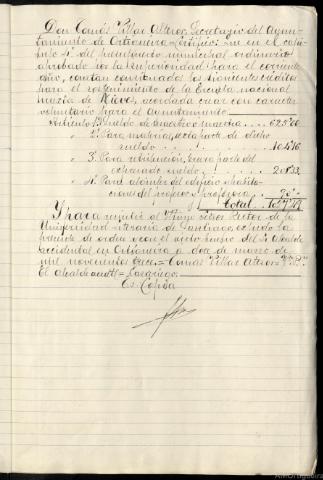 Don Tomás Villar Alteror, Secretario del Ayun-
tamiento de Ortigueira = Certifico: que en el capí-
tulo 4º del presupuesto municipal ordinario
aprobado por la Superioridad para el corriente
año, constan consignados los siguientes créditos
para el sostenimiento de la Escuela nacional
mixta de Nieves, acordada crear con carácter
voluntario para el Ayuntamiento
Artículo 1º Sueldo de maestro o maestra 625'00
" 2º Para material, sexta parte de dicho
sueldo 104'16
" 3º Para retribución, tercera parte del
expresado sueldo 208'33
" 4º Para alquiler del edificio y habita-
ciones del profesor o profesora
Total
Y para remitir al Ilmo señor Rector de la
Universidad literaria de Santiago, expido la
presente de orden y con el visto bueno del Sr Alcalde
accidental en Ortigueira a doce de marzo de
mil novecientos trece. = Tomás Villar Alteror = Vº Bº
El Alcalde acctl =
Es Copia
Alm Ortigueira